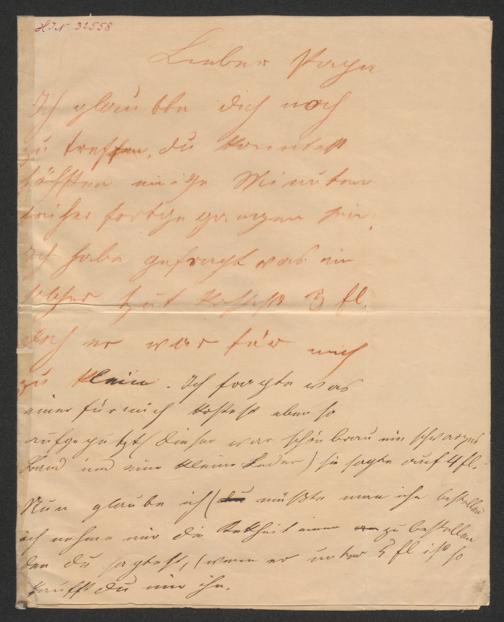 H.I.N. 32558
Lieber Papa
Ich glaubte dich noch
zu treffen, du konntest
höchsten einige Minuten
früher fortgegangen sein.
Ich habe gefragt was ein
solcher Hut kostet 3 fl.
doch er war für mich
zu klein. Ich fragte was
einer für mich kostet eben so
aufgeputzt (dieser war schön braun ein schwarzes
Band und eine kleine Feder) sie sagte auch 4 fl.
Nun glaube ich (müßte man ihn bestellen
ich nehme mir die zu bestellen
den du sagtest, (wenn er unter 5 fl ist so
kaufst du mir ihn.